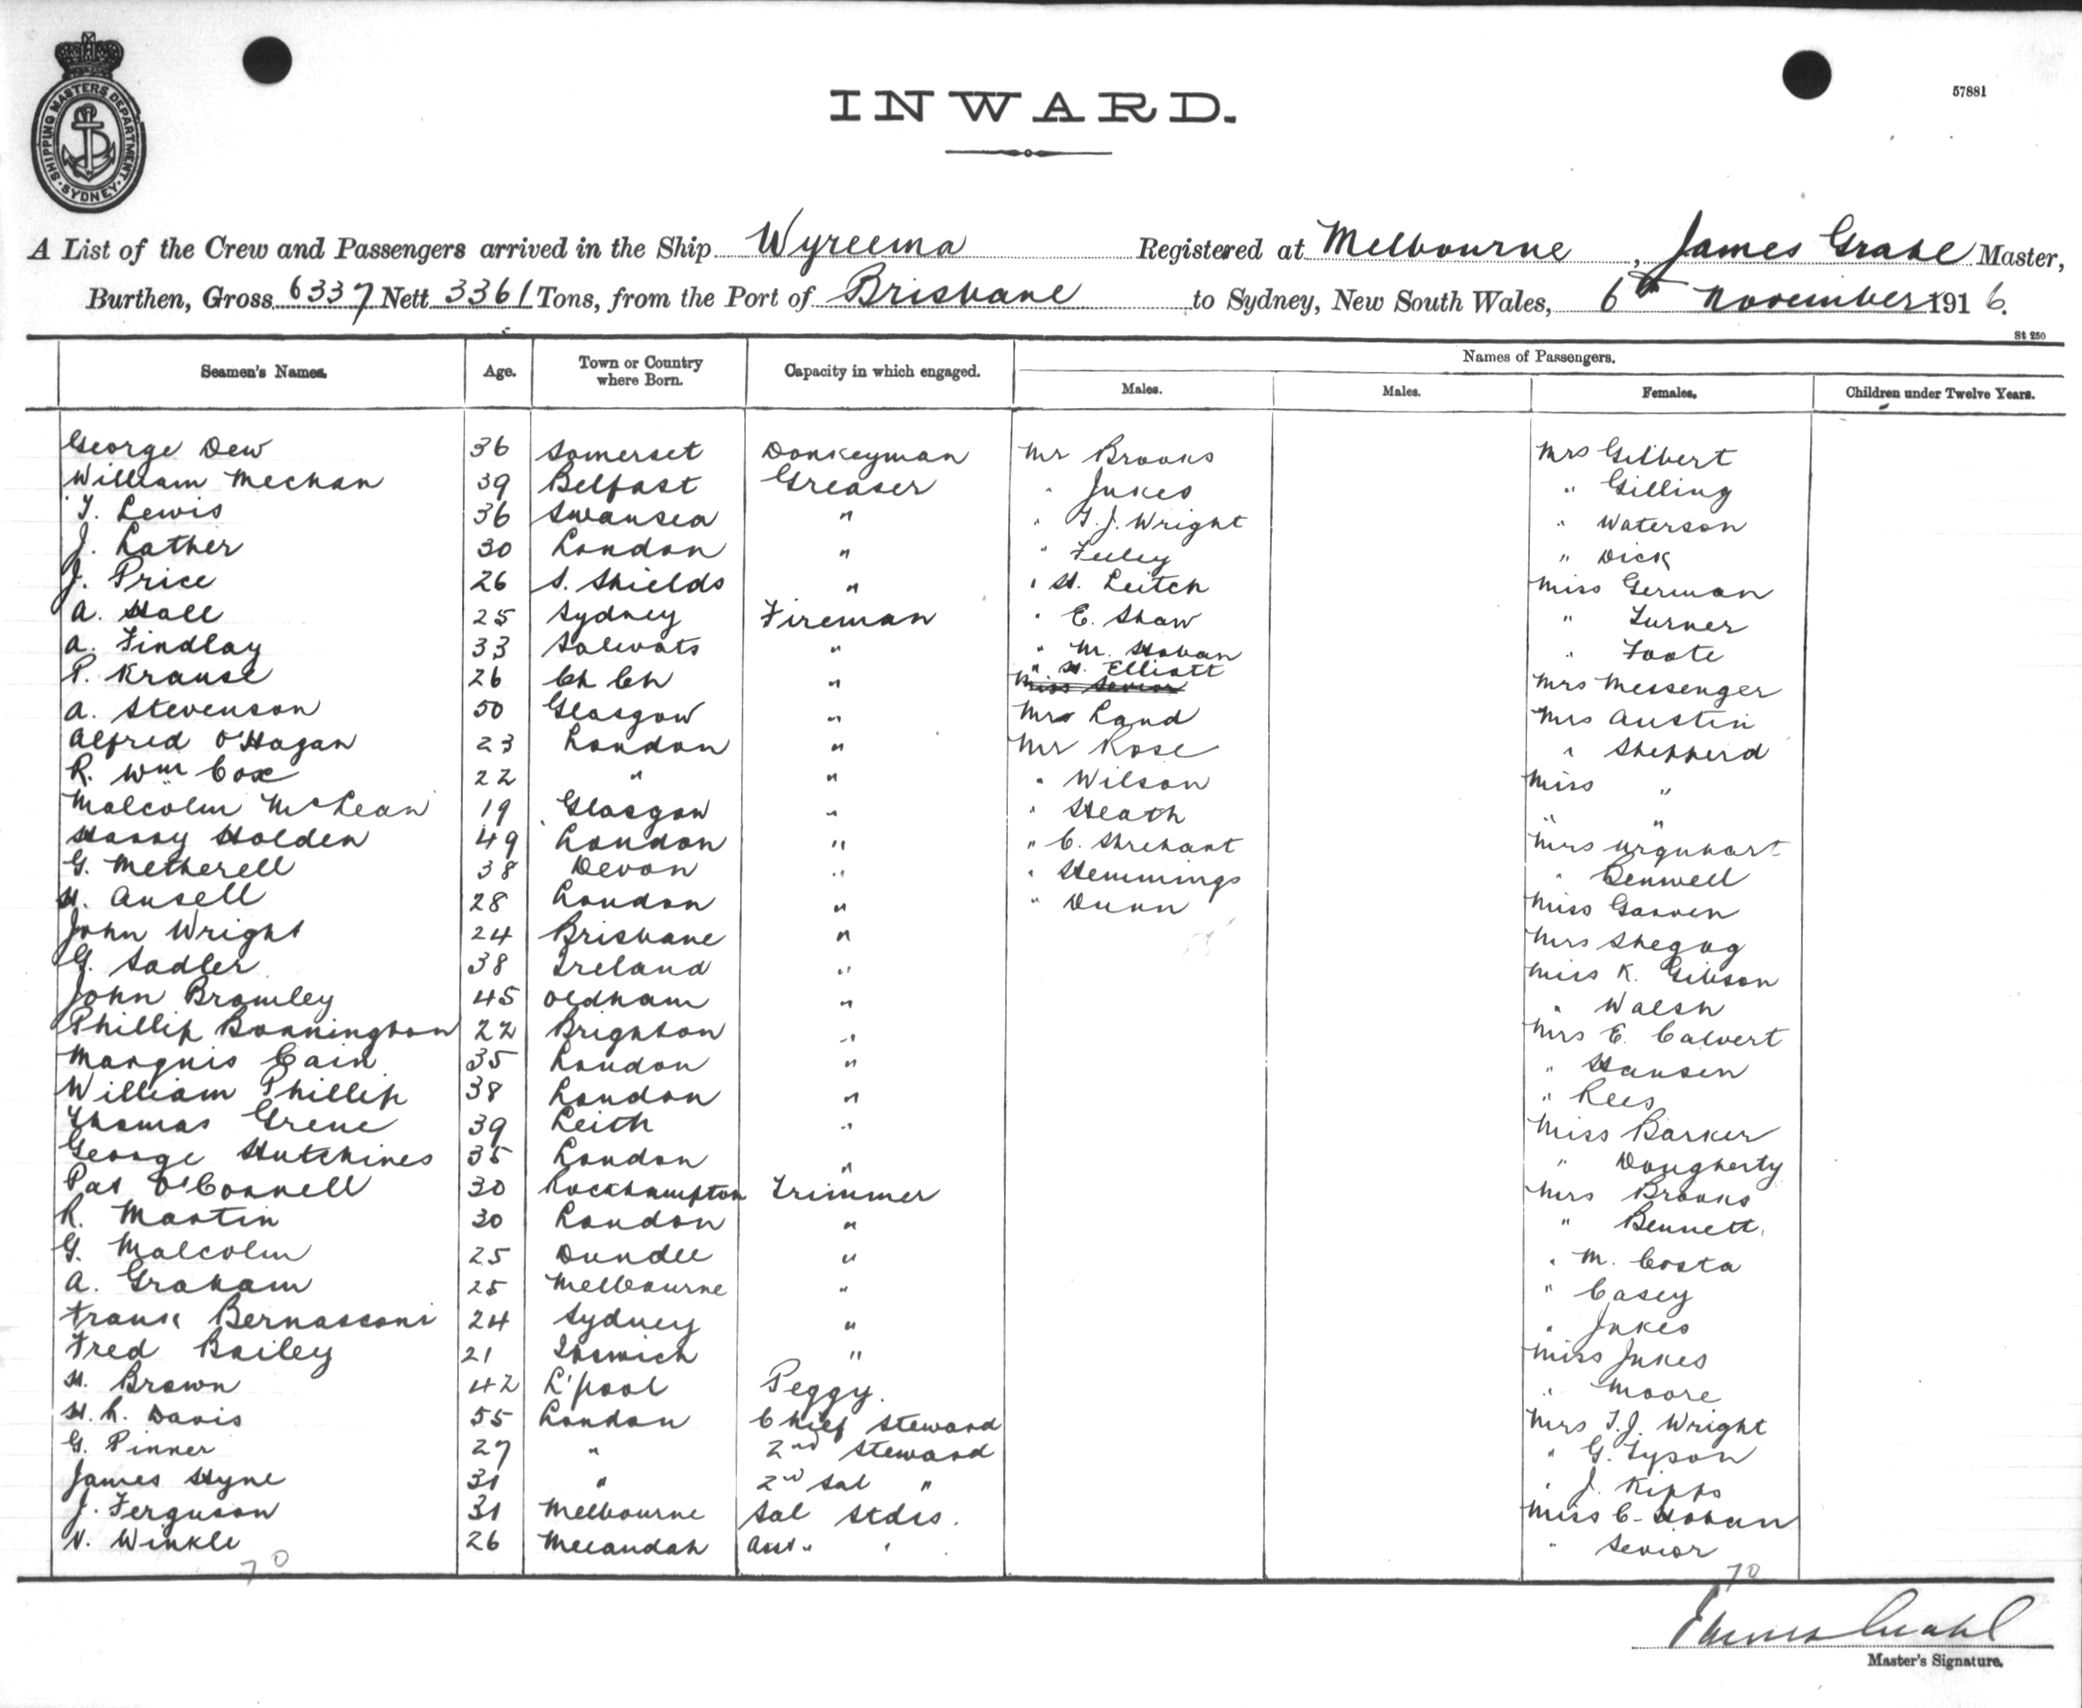 SHIPPING MASTERS DEPARTMENT. SYDNEY.
57881
INWARD.
A List of the Crew and Passengers arrived in the Ship Wyreema Registered at Melbourne, James Grahl Master,
Burthen, Gross 6337 Nett 3361 Tons, from the Port of Brisbane to Sydney, New South Wales, 6th November 1916.
St 250
Seamen's Names. Age. Town or Country where Born. Capacity in which engaged. Names of Passengers.
Males. Males. Females. Children under Twelve Years.
George Dew 36 Somerset Donkeyman Mr Brooks Mrs Gilbert
William Mechan 39 Belfast Greaser " Jukes " Gilling
T. Lewis 36 Swansea " " T.J. Wright " Waterson
J. Lather 30 London " " Feeley " Dick
J. Price 26 S. Shields " " H. Leitch Miss German
A. Hall 25 Sydney Fireman " E. Shaw " Turner
A. Findlay 33 " " M. Hoban " Foote
P. Krause 26 Ch Ch " " H. Elliott Mrs Messenger
Miss Sevior
A. Stevenson 50 Glasgow " Mrs Land Mrs Austin
Alfred O'Hagan 23 London " Mr Rose " Shepperd
R. Wm Cox 22 " " " Wilson Miss "
Malcolm McLean 19 Glasgow " " Heath " "
Harry Holden 49 London " " C. Mrs Urquhart
G. Metherell 38 Devon " " Hemmings " Benwell
H. Ansell 28 London " " Dunn Miss Garven
John Wright 24 Brisbane " Mrs Shegog
G. Sadler 38 Ireland " Miss K. Gibson
John Bromley 45 Oldham " " Walsh
Phillip Bonnington 22 Brighton " Mrs E. Calvert
Marquis Cain 35 London " " Hansen
William Phillip 38 London " " Rees
Thomas Grene 39 Leith " Miss Barker
George Hutchines 35 London " " Dougherty
Pat O'Connell 30 Rockhampton Trimmer Mrs Brooks
R. Martin 30 London " " Bennett
G. Malcolm 25 Dundee " " M. Costa
A. Graham 25 Melbourne " " Casey
Frank Bernasconi 24 Sydney " " Jukes
Fred Bailey 21 Ipswich " Miss Jukes
H. Brown 42 L'pool Peggy. " Moore
H. L. Davis 55 London Chief Steward Mrs T.J. Wright
G. Pinner 27 " 2nd Steward " G. Tyson
James Hyne 31 " 2nd Sal " " J. Kipps
J. Ferguson 31 Melbourne Sal Stdss. Miss C. Hoban
N. Winkle 26 Meeandah Asst " " " Sevior
70 70
James Grahl
Master's Signature.